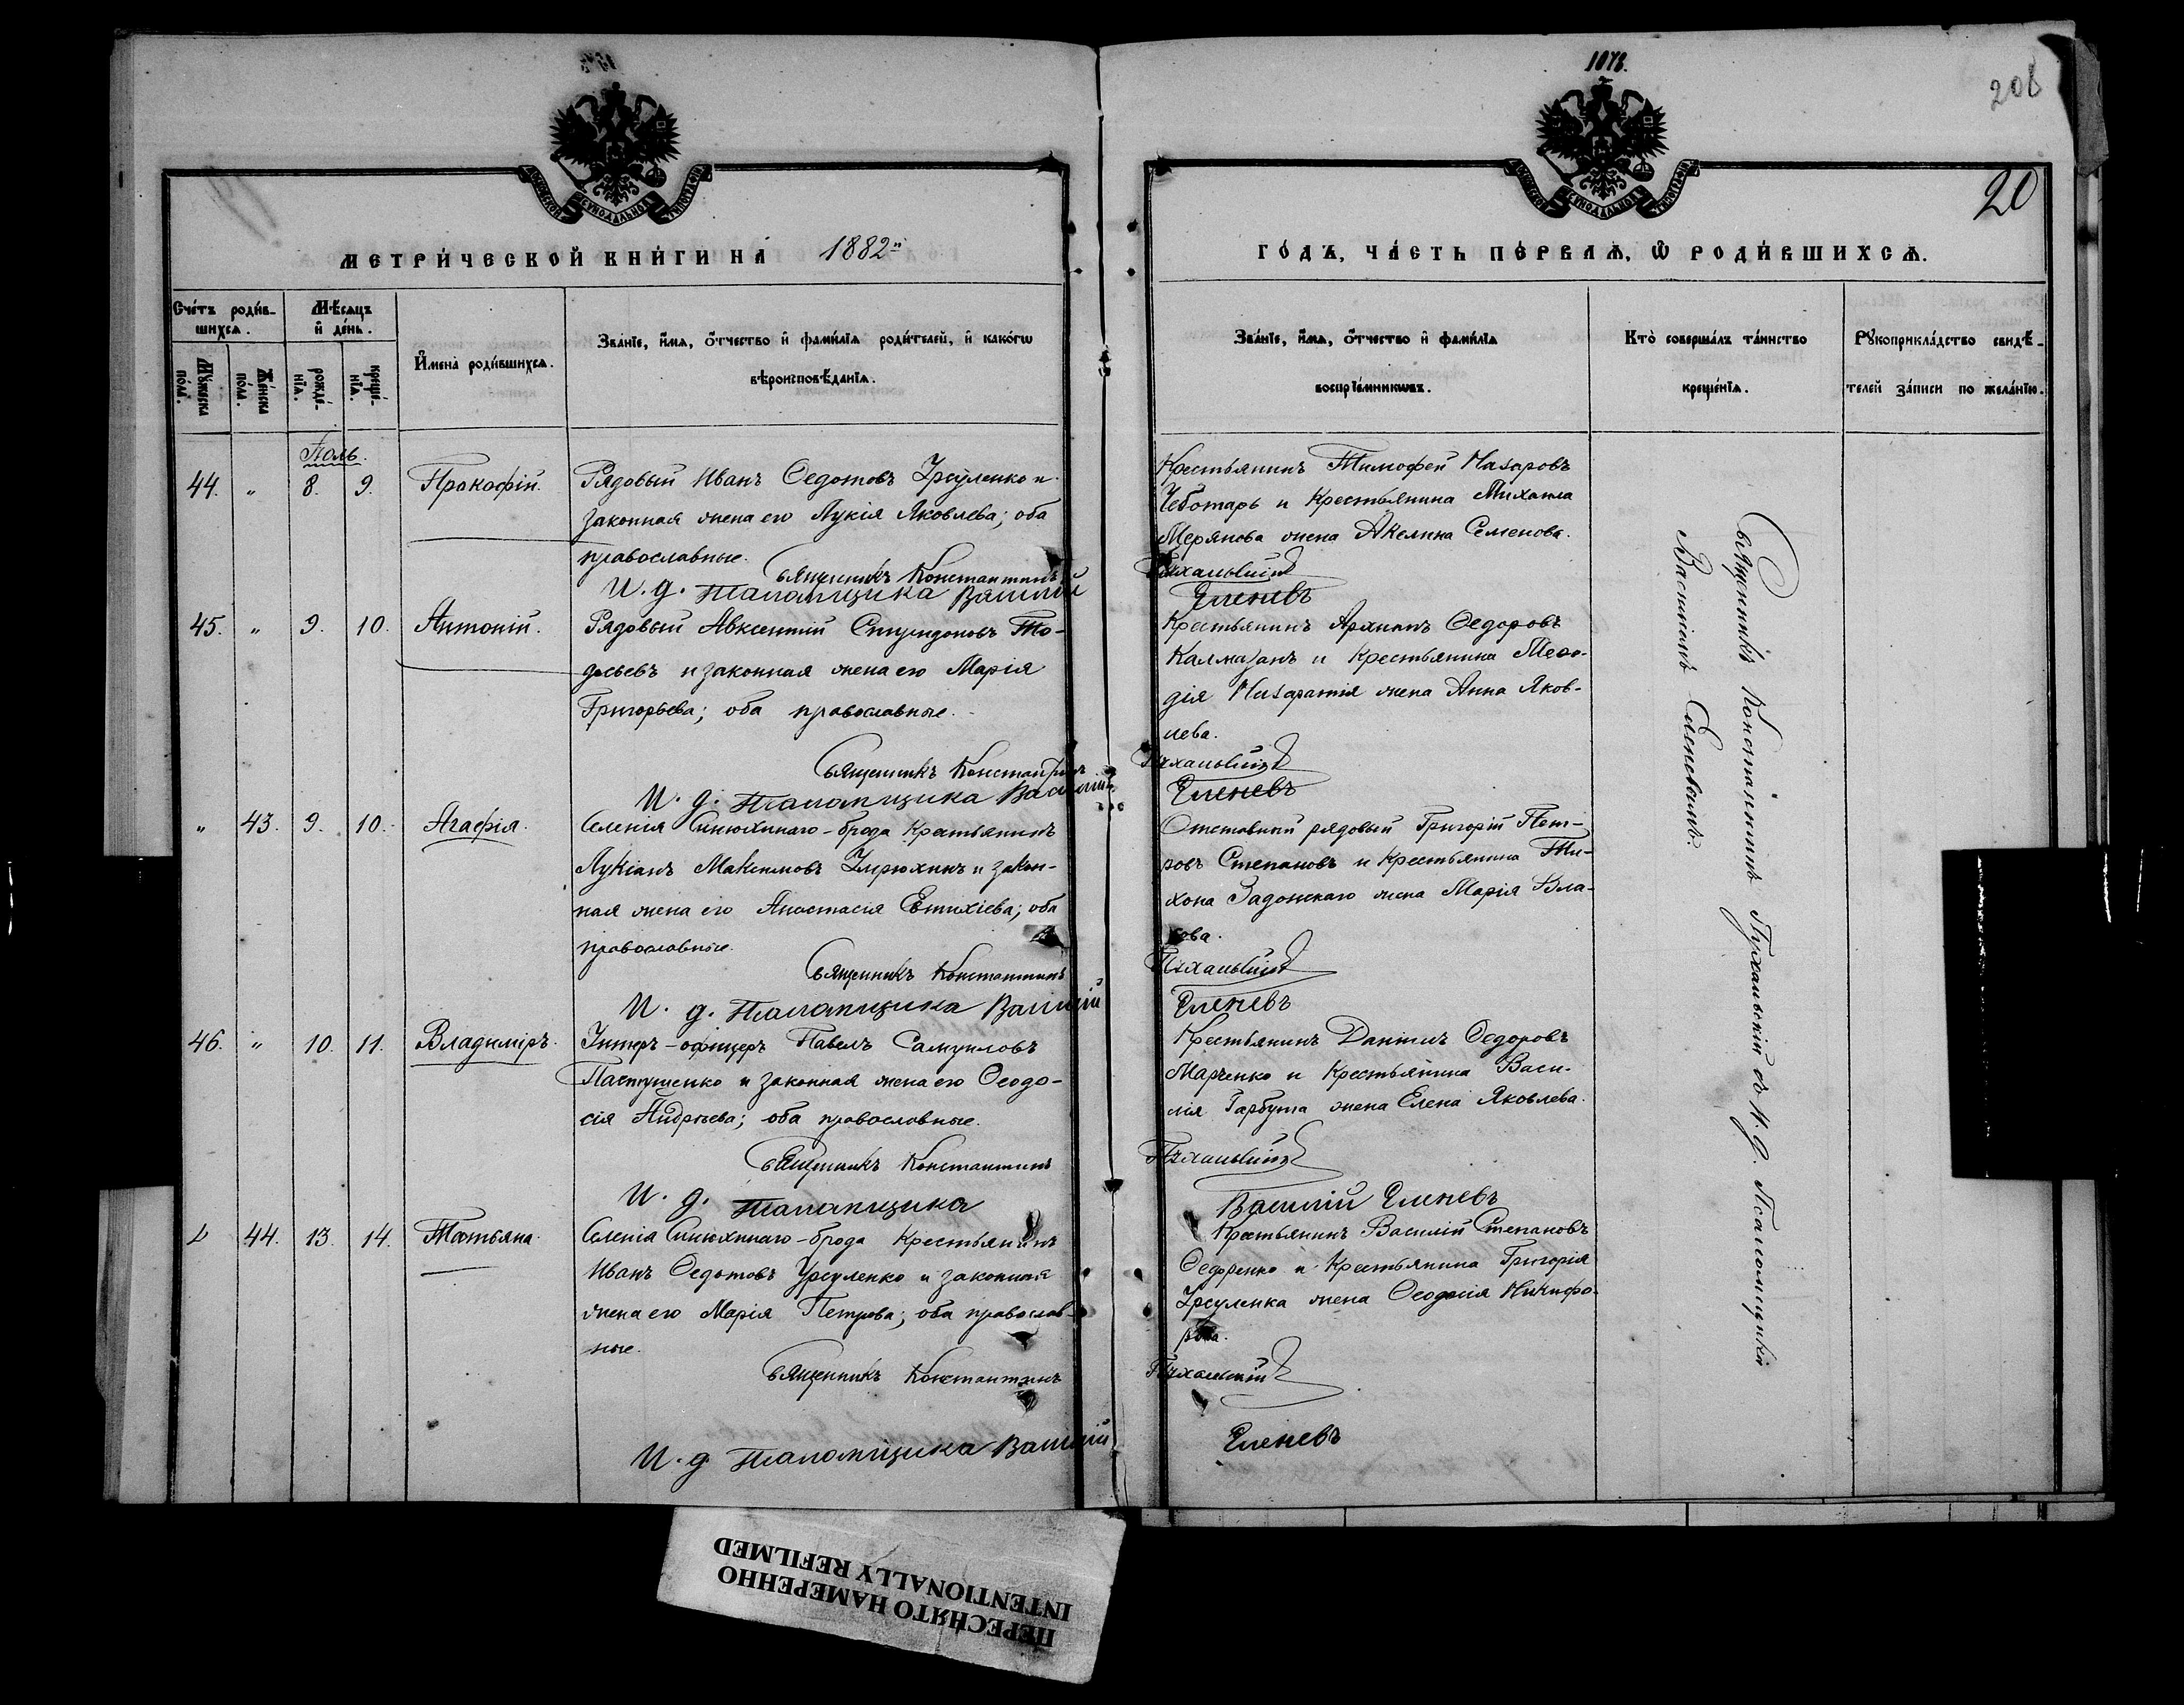 1878.
206
20
МЕТРИЧЕСКОЙ КНИГИ НА 1882
ГОДЪ, ЧАСТЬ ПЕРВАЯ, Ѡ РОДИВШИХСЯ.
Счетъ родив-
шихся.
Мужеска
пола.
Женска
пола.
Мѣсяцъ
и день.
рожде-
нія.
креще-
нія.
Имена родившихся.
Званіе, имя, отчество и фамилія родителей, и какогѡ
вѣроисповѣданія.
Званіе, имя, отчество и фамилія
воспріемникѡвъ.
Кто совершалъ таинство
крещенія.
Рукоприкладство свидѣ-
телей записи по желанію.
Іюль.
44. " 8. 9. Прокофій.
Рядовый Иванъ Ѳедотовъ Урсуленко и
законная жена его Лукія Яковлева; оба
православные.
Священникъ Константинъ
И. д. псаломщика Василій
Крестьянинъ Тимофей Назаровъ
Чеботарь и крестьянина Михаила
Мерянова жена Акелина Семенова.
Пухальскій
Еленевъ
45. " 9. 10. Антоній.
Рядовый Авксентій Спиридоновъ То-
досьевъ и законная жена его Марія
Григорьева; оба православные.
Священникъ Константинъ
И. д. псаломщика Василій
Крестьянинъ Архипъ Ѳедоровъ
Калмазанъ и крестьянина Меѳо-
дія жена Анна Яков-
лева.
Пухальскій
Еленевъ
" 43. 9. 10. Агафія.
Селенія Синюхинаго-брода крестьянинъ
Лукіанъ Максимовъ и закон-
ная жена его Анастасія Евтихіева; оба
православные.
Священникъ Константинъ
И. д. псаломщика Василій
Отставный рядовый Григорій Пет-
ровъ Степановъ и крестьянина Ти-
хона Задонскаго жена Марія Вла-
Пухальскій
Еленевъ
46. " 10. 11. Владиміръ.
Унтеръ-офицеръ Павелъ Самуиловъ
Пастушенко и законная жена его Ѳеодо-
сія Андреева; оба православные.
Священникъ Константинъ
И. д. псаломщика
Крестьянинъ Даніилъ Ѳедоровъ
Марченко и крестьянина Васи-
лія Гарбуза жена Елена Яковлева.
Пухальскій
Василій Еленевъ
" 44. 13. 14. Татьяна.
Селенія Синюхинаго-брода крестьянинъ
Иванъ Ѳедотовъ Урсуленко и законная
жена его Марія Петрова; оба православ-
ные.
Священникъ Константинъ
И. д. псаломщика Василій
Крестьянинъ Василій Степановъ
Ѳедоренко и крестьянина Григорія
Урсуленка жена Ѳеодосія Никифо-
рова.
Пухальскій
Еленевъ
Священникъ Константинъ Пухальскій съ И. д. Псаломщика
Василіемъ Еленевымъ.
ПЕРЕСНЯТО НАМЕРЕННО
INTENTIONALLY REFILMED